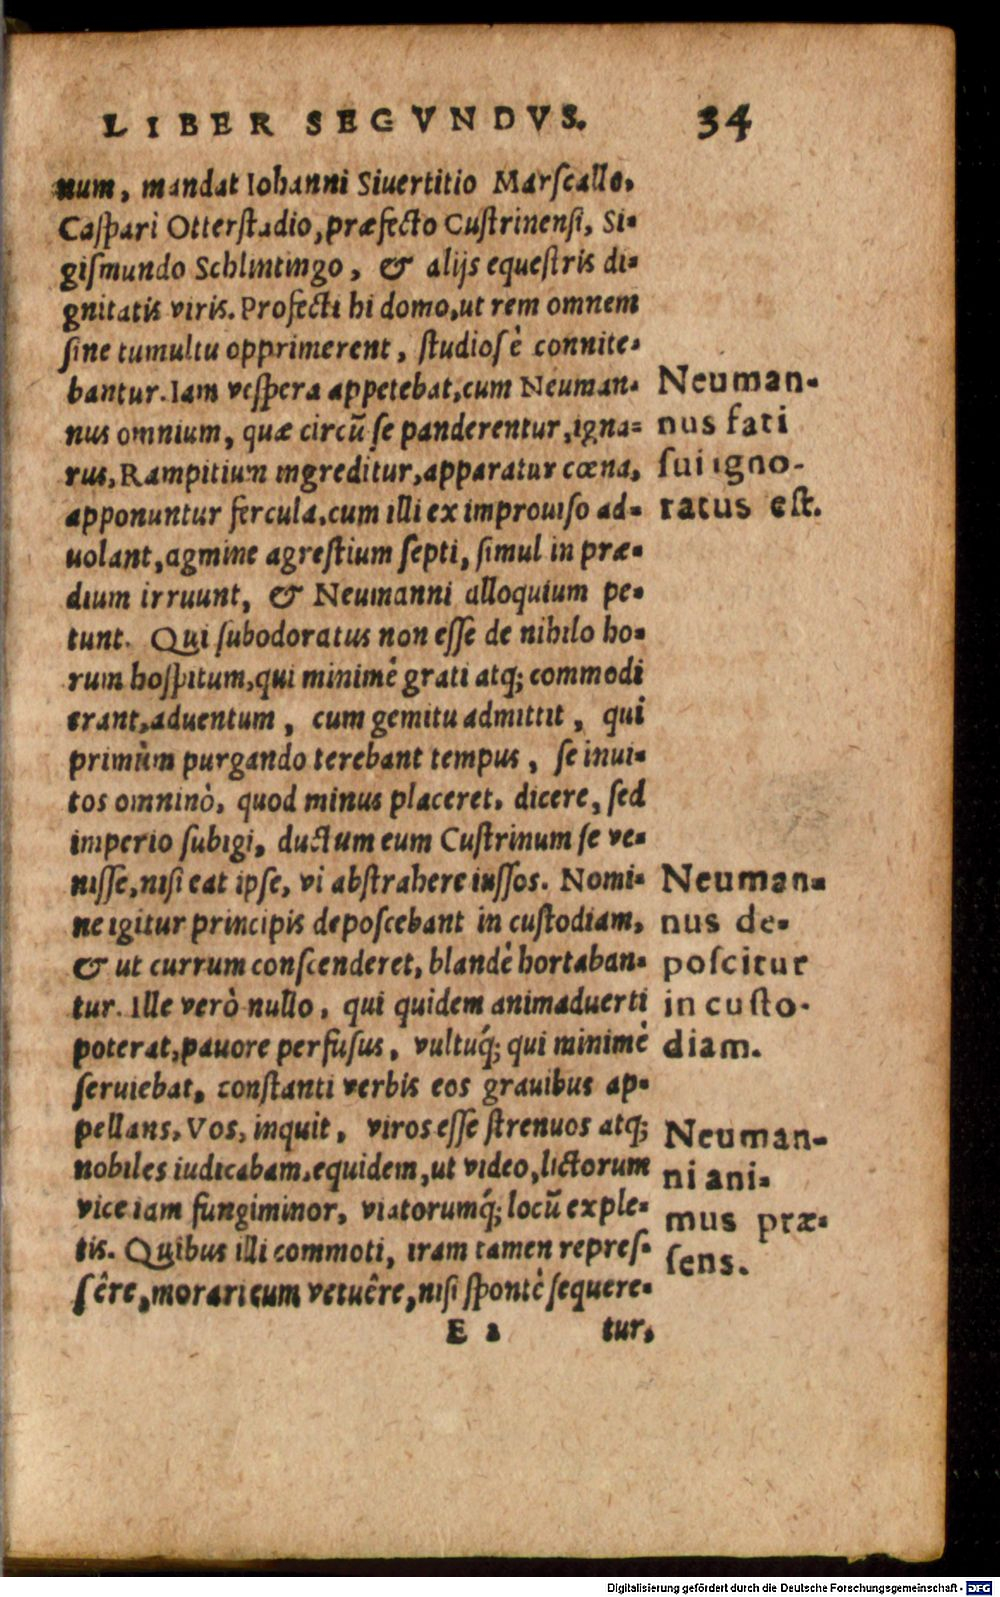 LIBER SEGVNDVS. 34
num, mandat Iohanni Siuertitio Marscallo,
Caspari Otterstadio, præfecto Custrinensi, Si-
gismundo Schlintingo, & alijs equestris di-
gnitatis viris. Profecti hi domo, ut rem omnem
sine tumultu opprimerent, studiosè connite-
bantur. Iam vespera appetebat, cum Neuman-
nus omnium, quæ circũ se panderentur, igna-
rus, Rampitium ingreditur, apparatur cœna,
apponuntur fercula, cum illi ex improuiso ad-
uolant, agmine agrestium septi, simul in præ-
dium irruunt, & Neumanni alloquium pe-
tunt. Qui subodoratus non esse de nihilo ho-
rum hospitum, qui minimè grati atq; commodi
erant, aduentum, cum gemitu admittit, qui
primùm purgando terebant tempus, se inui-
tos omninò, quod minus placeret, dicere, sed
imperio subigi, ductum eum Custrinum se ve-
nisse, nisi eat ipse, vi abstrahere iussos. Nomi-
ne igitur principis deposcebant in custodiam,
& ut currum conscenderet, blandè hortaban-
tur. Ille verò nullo, qui quidem animaduerti
poterat, pauore perfusus, vultuq́; qui minimè
seruiebat, constanti verbis eos grauibus ap-
pellans, Vos, inquit, viros esse strenuos atq;
nobiles iudicabam, equidem, ut video, lictorum
vice iam fungiminor, viatorumq́; locũ exple-
tis. Quibus illi commoti, iram tamen repres-
sêre, morari eum vetuêre, nisi spontè sequere-
E 2 tur,
Neuman-
nus fati
sui igno-
ratus est.
Neuman-
nus de-
poscitur
in custo-
diam.
Neuman-
ni ani-
mus præ-
sens.
Digitalisierung gefördert durch die Deutsche Forschungsgemeinschaft - DFG